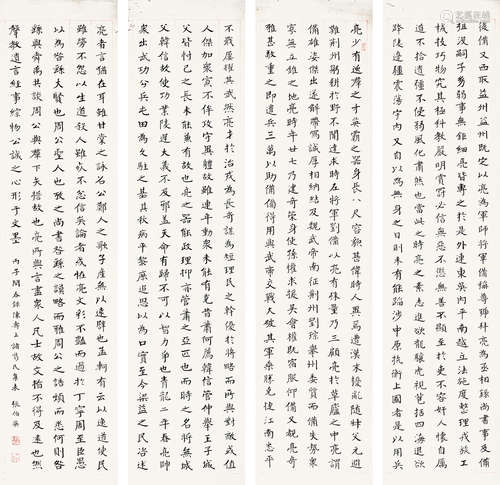 亮少有逸群之才英霸之器身長八尺容貌甚偉時人異焉遭漢末擾亂隨叔父玄避
難荊州躬耕於野不求聞達時左將軍劉備以亮有殊量乃三顧亮於草廬之中亮謂
備雄姿傑出遂解帶寫誠厚相結納及魏武帝南征荊州劉琮舉州委質而備失勢衆
寡無立錐之地亮時年廿七乃建奇策身使孫權求援吳會權既宿服仰備又覩亮奇
雅甚敬重之即遣兵三萬以助備備得用與武帝交戰大破其軍乘勝克捷江南悉平
後備又西取益州益州既定以亮為軍師將軍備稱尊號拜亮為丞相錄尚書事及備
殂没嗣子幼弱事無鉅細亮皆專之於是外連東吳內平南越立法施度整理戎旅工
械技巧物究其極科教嚴明賞罰必信無惡不懲無善不顯至於吏不容奸人懷自厲
道不拾遺彊不侵弱風化肅然也當此之時亮之素志進欲龍驤虎視苞括四海退欲
跨陵邊疆震蕩宇內又自以為無身之日則未有能蹈涉中原抗衡上國者是以用兵
不戢屢耀其武然亮才於治戎為長奇謀為短理民之幹優於將略而所與對敵或值
人傑加衆寡不侔攻守異體故雖連年動衆未能有克昔蕭何薦韓信管仲舉王子城
父皆忖己之長未能兼有故也亮之器能政理抑亦管蕭之亞匹也而時之名將無城
父韓信故使功業陵遲大義不及邪蓋天命有歸不可以智力爭也青龍二年春亮帥
衆出武功分兵屯田為久駐之基其秋病卒黎庶追思以為口實至今梁益之民咨述
亮者言猶在耳雖甘棠之詠召公鄭人之歌子產無以遠譬也孟軻有云以逸道使民
雖勞不怨以生道殺人雖死不忿信矣論者或怪亮文彩不豔而過於丁寧周至臣愚
以為咎繇大賢也周公聖人也攷之尚書咎繇之謨略而雅周公之誥煩而悉何則咎
繇與舜禹共談周公與羣下矢誓故也亮所與言盡衆人凡士故文指不得及遠也然
聲教遺言經事綜物公誠之心形于文墨 丙子閏春錄陳壽上諸葛氏集表 張伯英